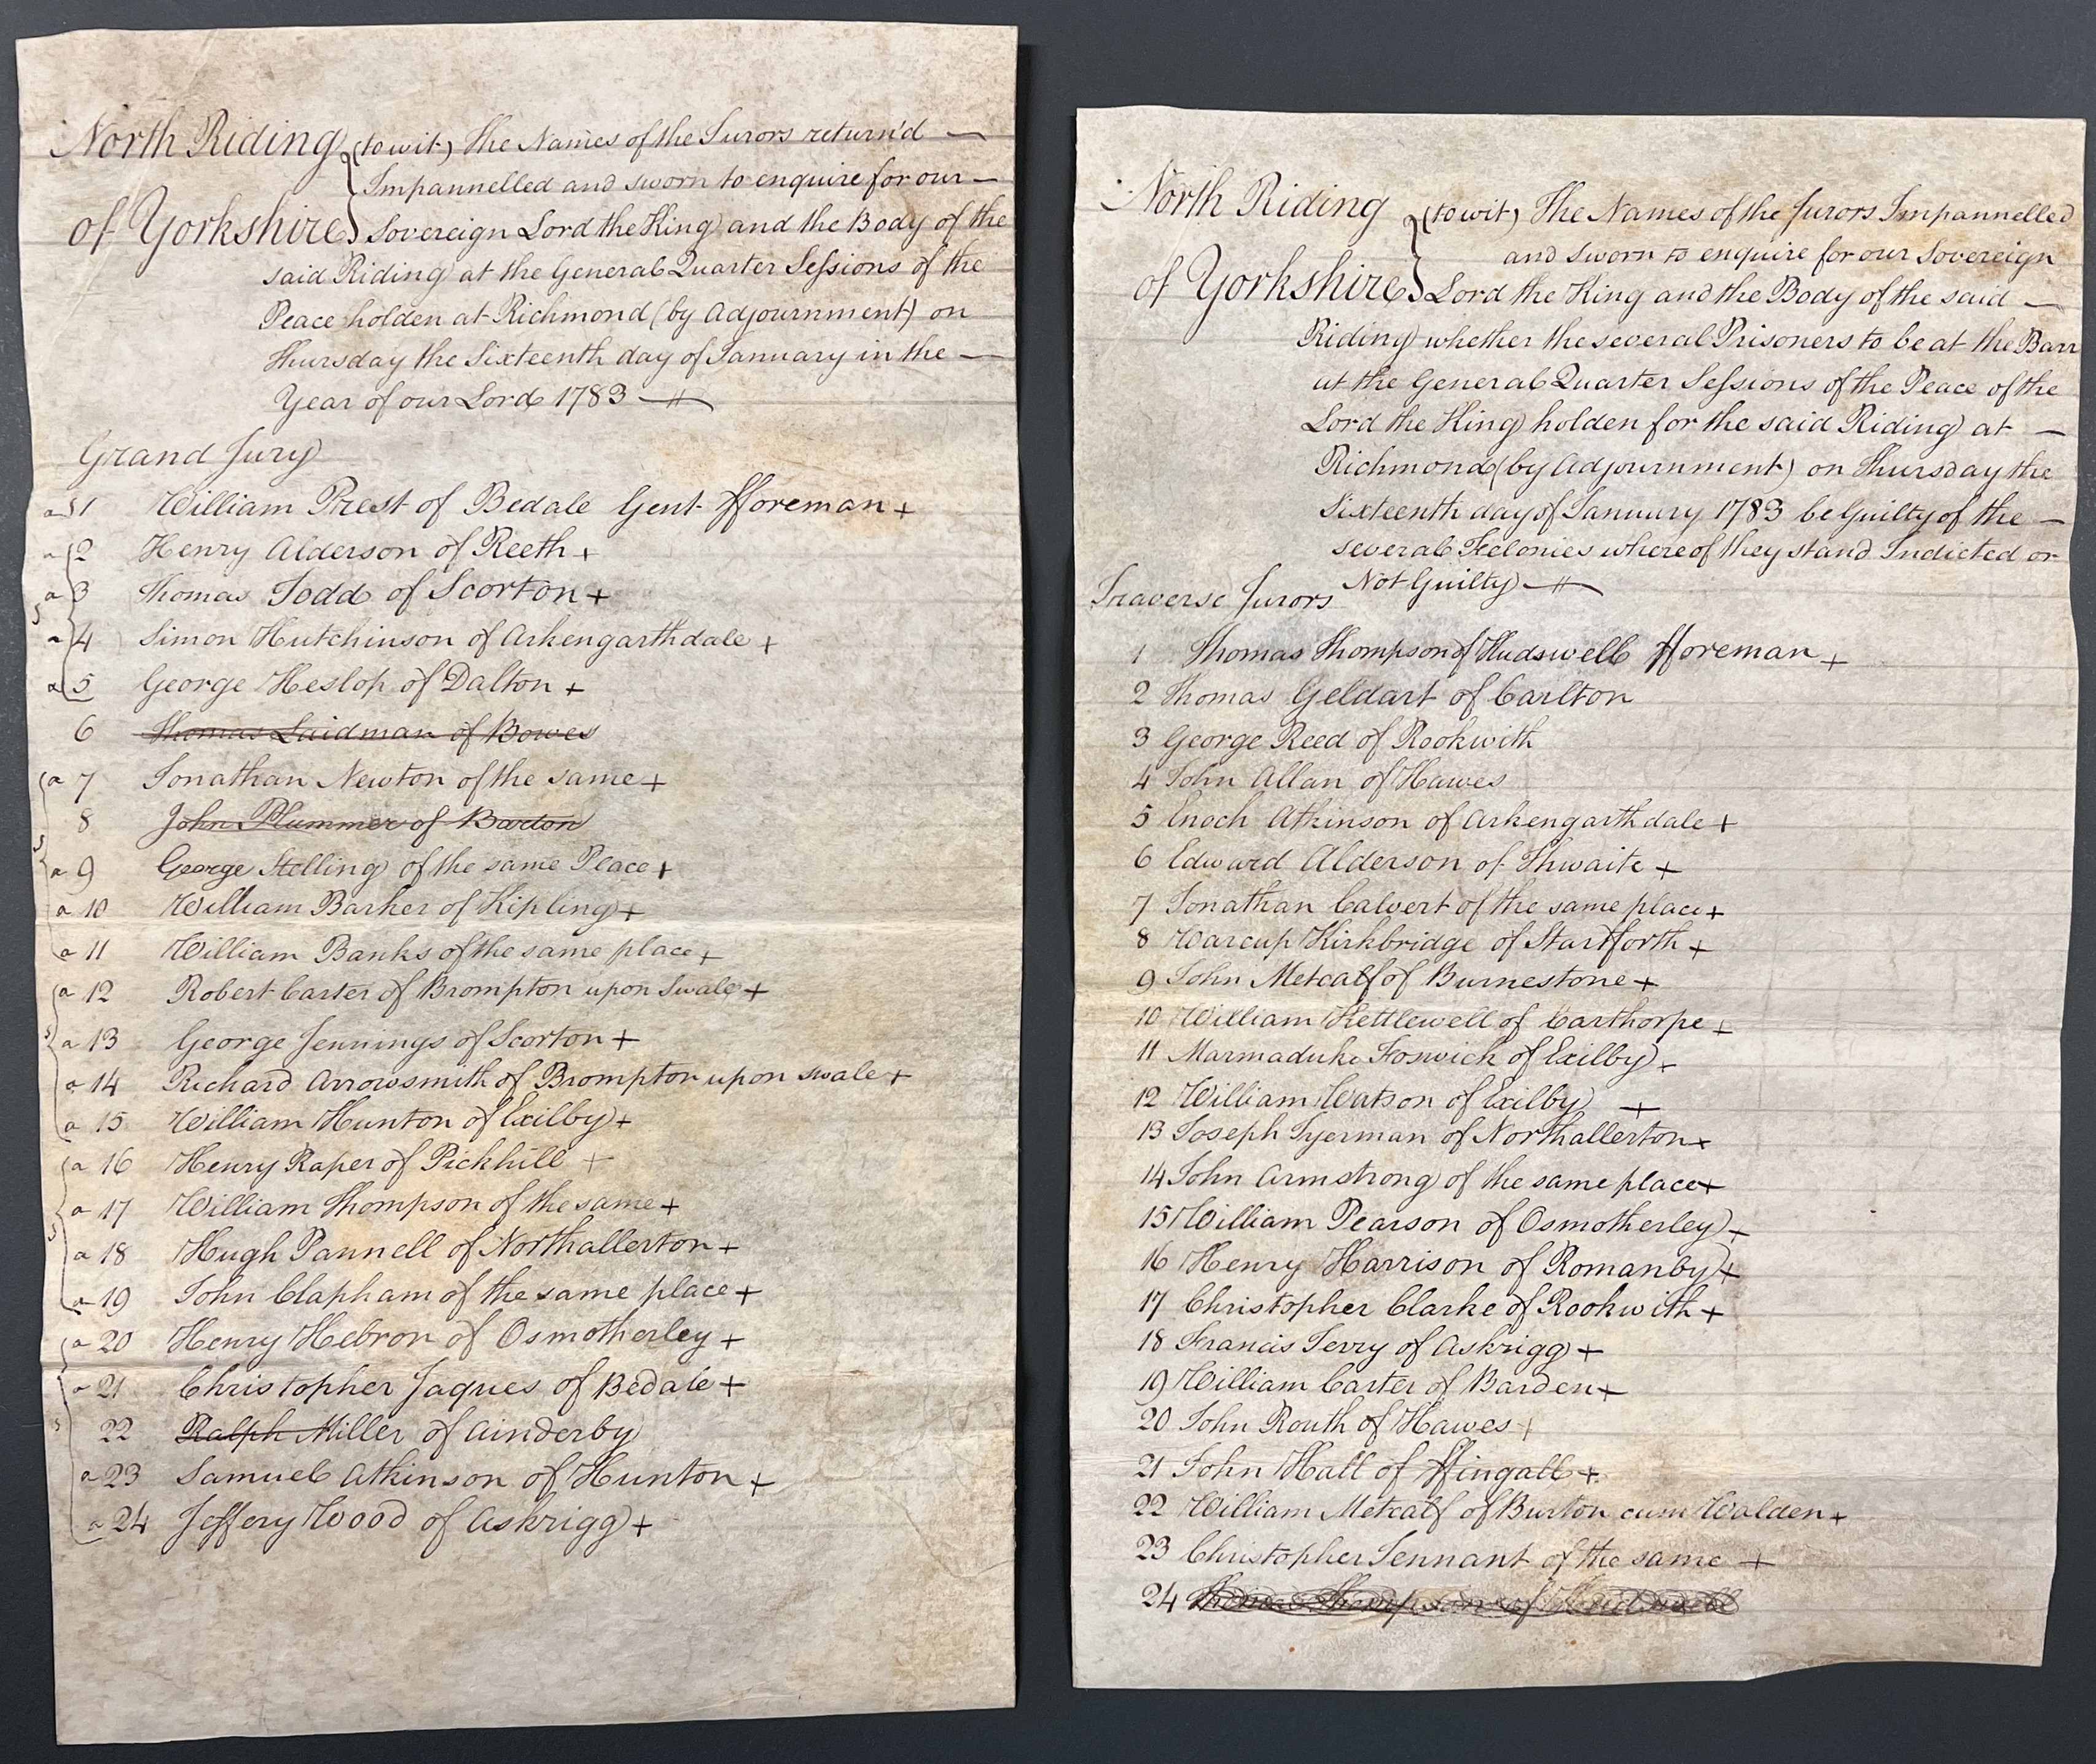 North Riding (to wit) The Names of the Jurors return'd —
Impannelled and sworn to enquire for our —
of Yorkshire Sovereign Lord the King and the Body of the
said Riding at the General Quarter Sessions of the
Peace holden at Richmond (by Adjournment) on
Thursday the Sixteenth day of January in the —
Year of our Lord 1783 —
Grand Jury
a 1 William Prest of Bedale Gent fforeman +
a 2 Henry Alderson of Reeth +
a 3 Thomas Todd of Scorton +
a 4 Simon Hutchinson of Arkengarthdale +
a 5 George Heslop of Dalton +
6 Thomas Laidman of Bowes
a 7 Jonathan Newton of the same +
8 John Plummer of Barton
a 9 George Stelling of the same Place +
a 10 William Barker of Kipling +
a 11 William Banks of the same place +
a 12 Robert Carter of Brompton upon Swale +
a 13 George Jennings of Scorton +
a 14 Richard Arrowsmith of Brompton upon swale +
a 15 William Hunton of Exilby +
a 16 Henry Raper of Pickhill +
a 17 William Thompson of the same +
a 18 Hugh Pannell of Northallerton +
a 19 John Clapham of the same place +
a 20 Henry Hebron of Osmotherley +
a 21 Christopher Jaques of Bedale +
22 Ralph Miller of Ainderby
a 23 Samuel Atkinson of Hunton +
a 24 Jeffery Wood of Askrigg +
North Riding (to wit) The Names of the Jurors Impannelled
and sworn to enquire for our Sovereign
of Yorkshire Lord the King and the Body of the said —
Riding whether the several Prisoners to be at the Barr
at the General Quarter Sessions of the Peace of the
Lord the King holden for the said Riding at —
Richmond (by Adjournment) on Thursday the
Sixteenth day of January 1783 be Guilty of the —
several Felonies whereof they stand Indicted or
Not Guilty —
Traverse Jurors
1 Thomas Thompson of Hudswell fforeman +
2 Thomas Geldart of Carlton
3 George Reed of Rookwith
4 John Allan of Hawes
5 Enoch Atkinson of Arkengarthdale +
6 Edward Alderson of Thwaite +
7 Jonathan Calvert of the same place +
8 Warcup Kirkbridge of Startforth +
9 John Metcalf of Burnestone +
10 William Kettlewell of Carthorpe +
11 Marmaduke Foswick of Exilby +
12 William Watson of Exilby +
13 Joseph Tyerman of Northallerton +
14 John Armstrong of the same place +
15 William Pearson of Osmotherley +
16 Henry Harrison of Romanby +
17 Christopher Clarke of Rookwith +
18 Francis Terry of Askrigg +
19 William Carter of Barden +
20 John Routh of Hawes +
21 John Hall of ffingall +
22 William Metcalf of Burton cum Walden +
23 Christopher Tennant of the same +
24 Thomas Thompson of Hudswell